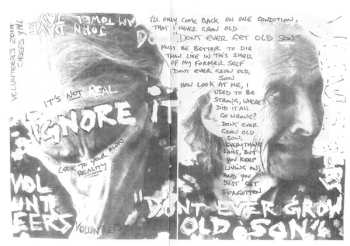 I'LL ONLY COME BACK ON ONE CONDITION,
THAT I NEVER GROW OLD
"DON'T EVER GET OLD SON"
MUST BE BETTER TO DIE
THAN LIVE IN THIS SHELL
OF MY FORMER SELF
DON'T EVER GROW OLD,
SON
NOW LOOK AT ME, I
USED TO BE
STRONG, WHERE
DID IT ALL
GO WRONG?
DON'T EVER
GROW OLD
SON,
EVERYTHING
FAILS, BUT
YOU KEEP
LIVING AND
JUST GET
FORGOTTEN
IT'S NOT REAL
IGNORE IT
LOOK TO YOUR OWN
REALITY
VOL
UNT
EERS
VOLUNTEERS
"DON'T EVER GROW
OLD SON"